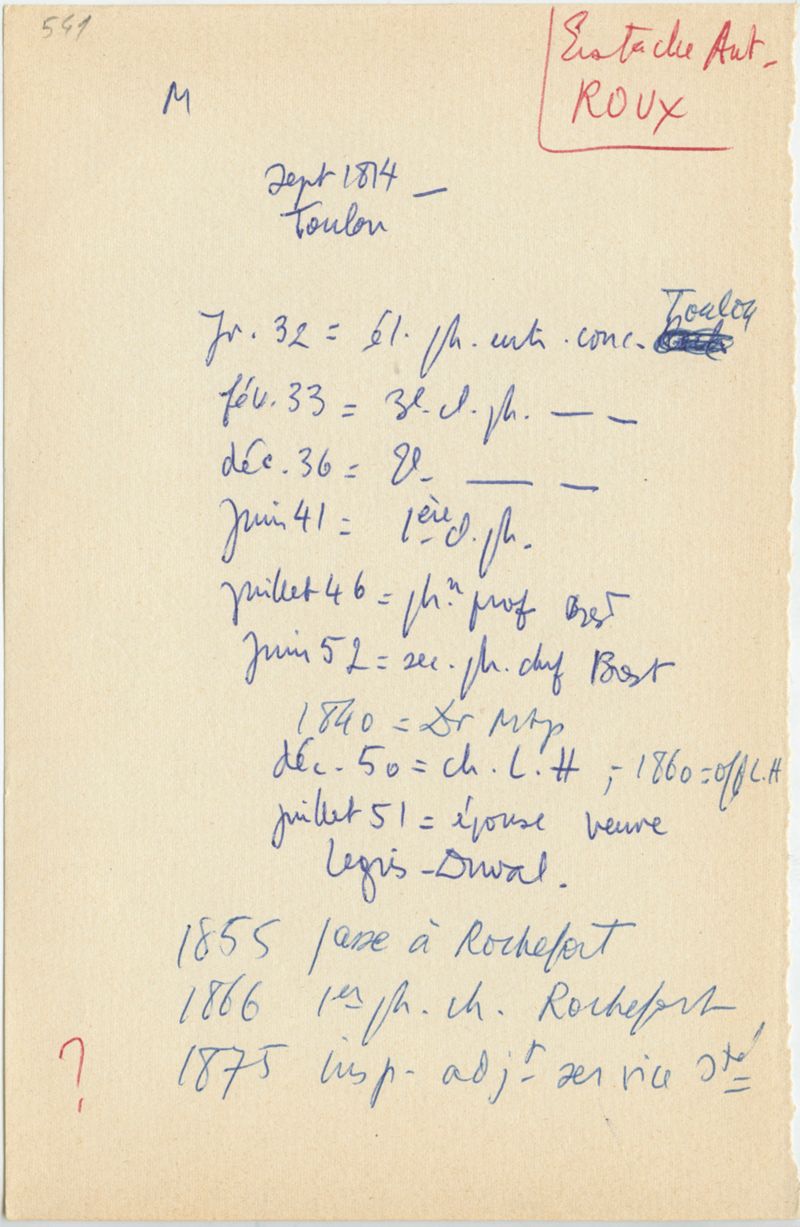 541
Eustache Ant-
ROUX
M
Sept 1814 —
Toulon
Toulon
Jr. 32 = él. ph. entr. conc.
fév. 33 = 3e. cl. ph. — —
déc. 36 = 2e. — —
Juin 41 = 1ère cl. ph.
juillet 46 = phn prof Brest
juin 52 = sec. ph. chef Brest
1840 = Dr Mtp
déc. 50 = ch. L. H ; - 1860 = off L. H
juillet 51 = épouse veuve
Legris - Duval.
1855 passe à Rochefort
1866 1er ph. ch. Rochefort
? 1875 insp. adjt service